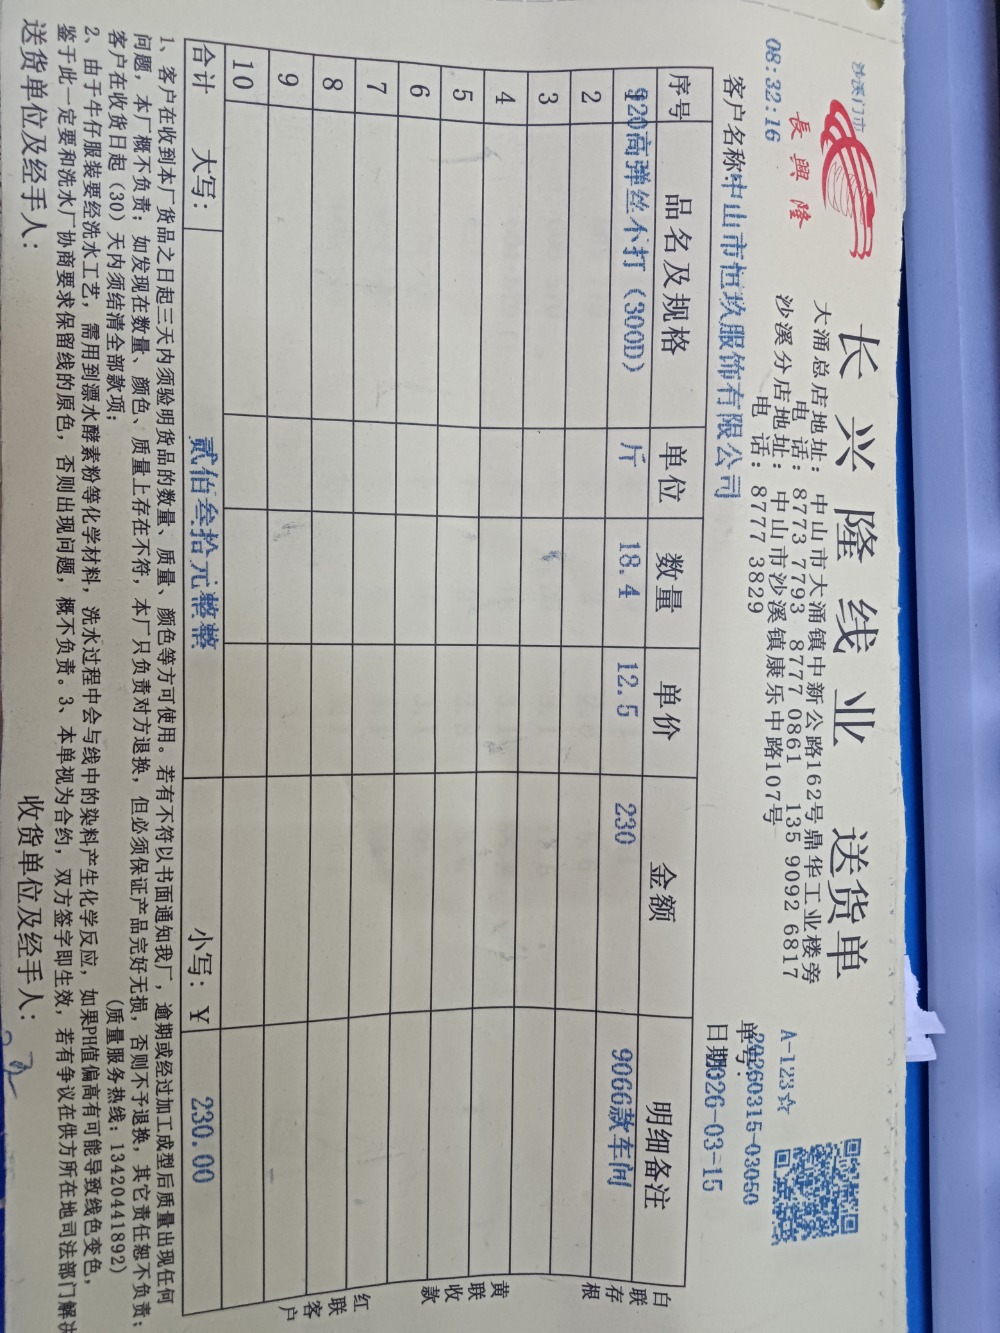 沙溪门市
08:32:16
長興隆
长兴隆线业 送货单
大涌总店地址：中山市大涌镇中新公路162号鼎华工业楼旁
电话：8773 7793 8777 0861 135 9092 6817
沙溪分店地址：中山市沙溪镇康乐中路107号
电话：8777 3829
A-123☆
单号：20260315-03050
客户名称：中山市恒玖服饰有限公司
日期：2026-03-15
序号 品名及规格 单位 数量 单价 金额 明细备注
1 920高弹丝不打（300D） 斤 18.4 12.5 230 9066款车间
2
3
4
5
6
7
8
9
10
合计 大写： 贰佰叁拾元整整 小写：￥ 230.00
白联存根
黄联收款
红联客户
1、客户在收到本厂货品之日起三天内须验明货品的数量、质量、颜色等方可使用。若有不符以书面通知我厂，逾期或经过加工成型后质量出现任何
问题，本厂概不负责；如发现在数量、颜色、质量上存在不符，本厂只负责对方退换，但必须保证产品完好无损，否则不予退换，其它责任恕不负责；
客户在收货日起（30）天内须结清全部款项； （质量服务热线：13420441892）
2、由于牛仔服装要经洗水工艺，需用到漂水酵素粉等化学材料，洗水过程中会与线中的染料产生化学反应，如果PH值偏高有可能导致线色变色，
鉴于此一定要和洗水厂协商要求保留线的原色，否则出现问题，概不负责。3、本单视为合约，双方签字即生效，若有争议在供方所在地司法部门解决
送货单位及经手人： 收货单位及经手人：